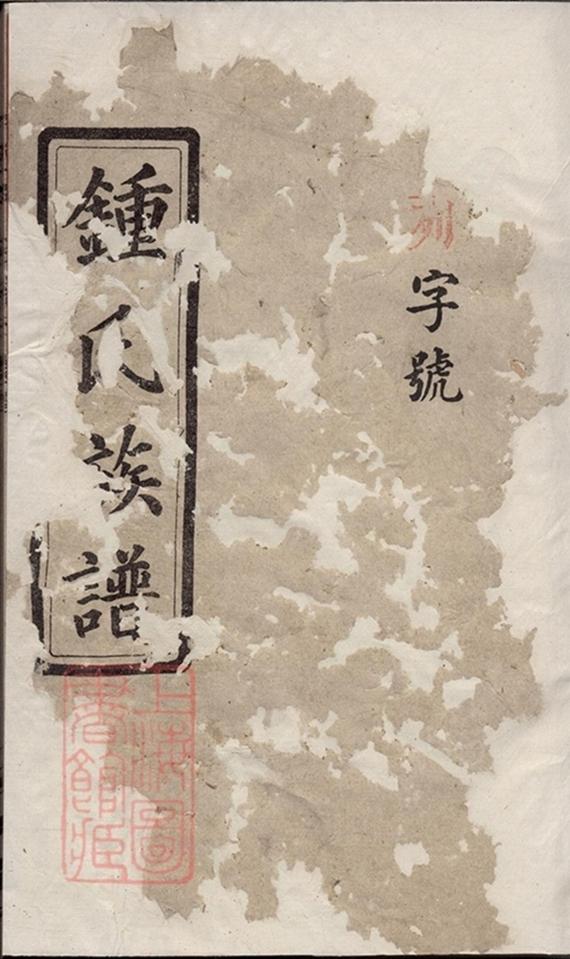 字號
鍾氏族譜
上海圖
書館藏